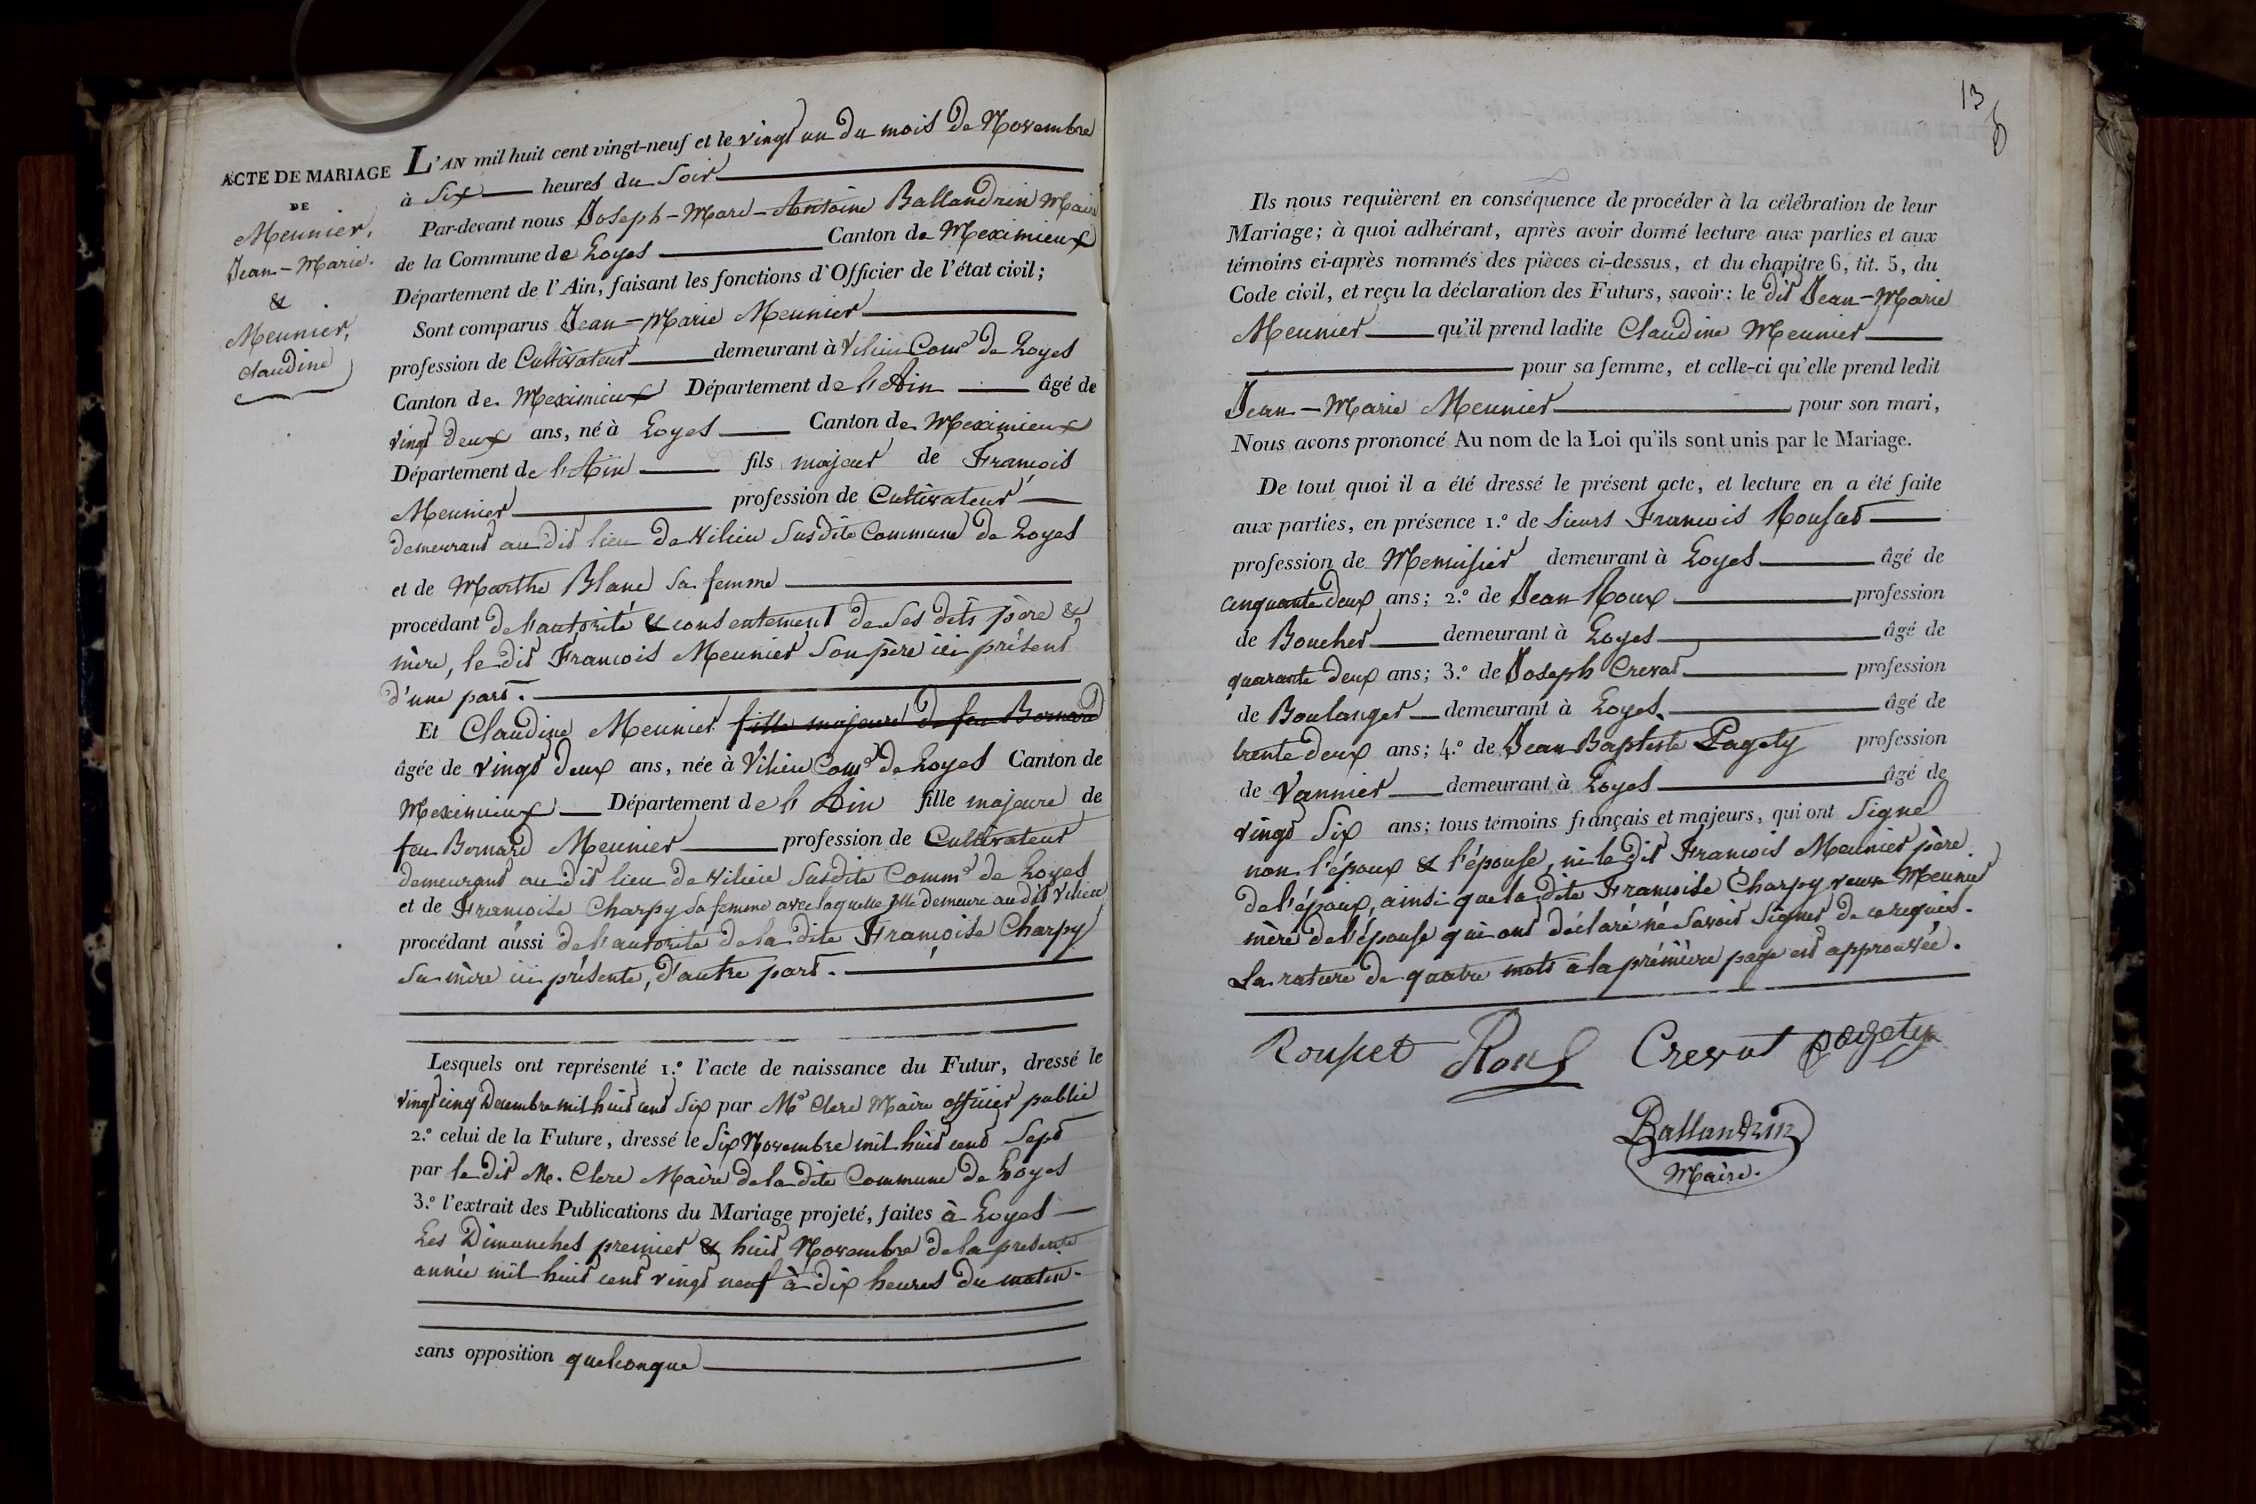 ACTE DE MARIAGE
DE
Meunier,
Jean-Marie.
&
Meunier,
Claudine
L'AN mil huit cent vingt-neuf et le vingt un du mois de Novembre
à Six heures du Soir
Par-devant nous Joseph-Marie-Antoine Ballandrin Maire
de la Commune de Loyes Canton de Meximieux
Département de l'Ain, faisant les fonctions d'Officier de l'état civil;
Sont comparus Jean-Marie Meunier
profession de Cultivateur demeurant à Vilieu Comᵉ de Loyes
Canton de Meximieux Département de l'Ain âgé de
vingt deux ans, né à Loyes Canton de Meximieux
Département de l'Ain fils majeur de François
Meunier profession de Cultivateur
demeurant au dit lieu de Vilieu Susdite Commune de Loyes
et de Marthe Blanc Sa femme
procédant de l'autorité & consentement de Ses dits père &
mère, le dit François Meunier Son père ici présent
d'une part.
Et Claudine Meunier fille majeure de feu Bernard
âgée de vingt deux ans, née à Vilieu Comᵉ de Loyes Canton de
Meximieux Département de l'Ain fille majeure de
feu Bernard Meunier profession de Cultivateur
demeurant au dit lieu de Vilieu Susdite Commᵉ de Loyes
et de Françoise Charpy Sa femme avec laquelle Elle demeure au dit Vilieu
procédant aussi de l'autorité de la dite Françoise Charpy
Sa mère ici présente, d'autre part.
Lesquels ont représenté 1.º l'acte de naissance du Futur, dressé le
vingt cinq Decembre mil huit cent Six par Mʳ Clerc Maire officier public
2.º celui de la Future, dressé le Six Novembre mil huit cent Sept
par le dit M. Clerc Maire de la dite Commune de Loyes
3.º l'extrait des Publications du Mariage projeté, faites à Loyes
Les Dimanches premier & huit Novembre de la presente
année mil huit cent vingt neuf à dix heures du matin.
sans opposition quelconque
13
Ils nous requièrent en conséquence de procéder à la célébration de leur
Mariage; à quoi adhérant, après avoir donné lecture aux parties et aux
témoins ci-après nommés des pièces ci-dessus, et du chapitre 6, tit. 5, du
Code civil, et reçu la déclaration des Futurs, savoir: le dit Jean-Marie
Meunier qu'il prend ladite Claudine Meunier
pour sa femme, et celle-ci qu'elle prend ledit
Jean-Marie Meunier pour son mari,
Nous avons prononcé Au nom de la Loi qu'ils sont unis par le Mariage.
De tout quoi il a été dressé le présent acte, et lecture en a été faite
aux parties, en présence 1.º de Sieurs François Rousset
profession de Menuisier demeurant à Loyes âgé de
cinquante deux ans; 2.º de Jean Roux profession
de Boucher demeurant à Loyes âgé de
quarante deux ans; 3.º de Joseph Crevat profession
de Boulanger demeurant à Loyes. âgé de
trente deux ans; 4.º de Jean Baptiste Pagety profession
de Vannier demeurant à Loyes âgé de
vingt Six ans; tous témoins français et majeurs, qui ont Signé
non l'époux & l'épouse, ni le dit François Meunier père
de l'époux, ainsi que la dite Françoise Charpy veuve Meunier
mère de l'épouse qui ont déclaré ne Savoir Signer de ce requis.
La rature de quatre mots à la première page est approuvée.
Rousset Roux Crevat pagety
Ballandrin
Maire.